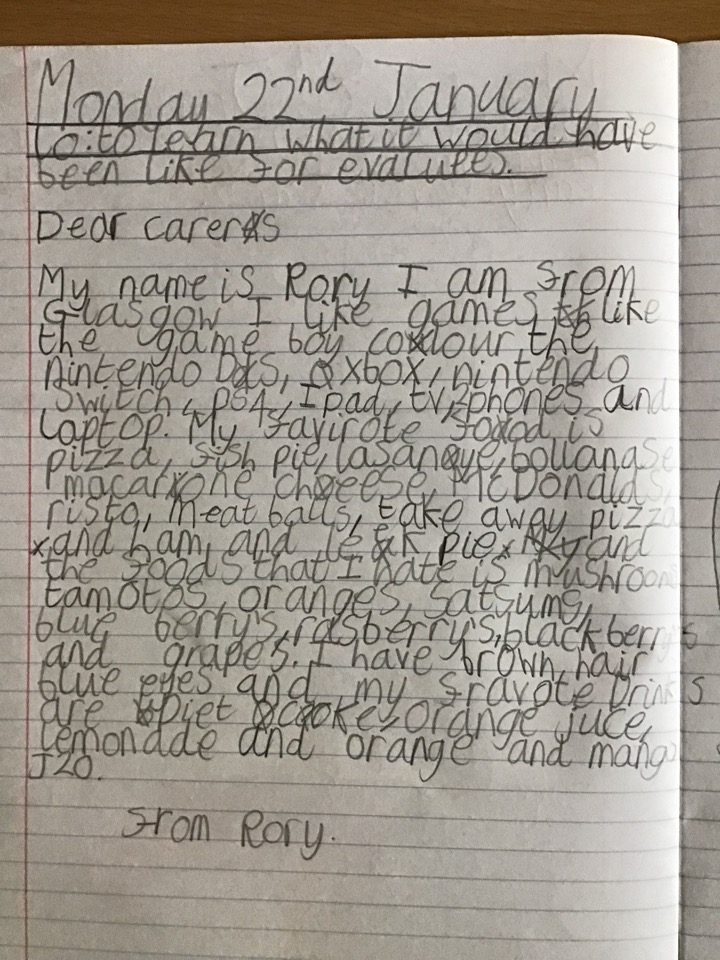 Monday 22nd January
Lo: to learn what it would have
been like for evacuees.
Dear carers
My name is Rory I am from
Glasgow I like games like
the game boy colour the
nintendo Ds, xbox, nintendo
switch, PS4, Ipad, tv, phones and
Laptop. My favirote food is
pizza, fish pie, lasanqye, bollangse
macarone cheese, McDonalds,
risto, meat balls, take away pizza
and ham, and leek pie and
the foods that I hate is mushrooms
tamotos, oranges, satsums,
blue berry's, rasberry's, blackberrys
and grapes. I have brown hair
blue eyes and my fravote Drinks
are Diet coke, orange juce,
lemonade and orange and mango
J20.
from Rory.